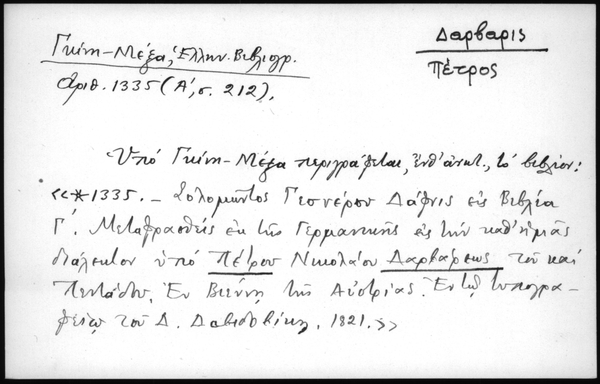 Γκίνη-Μέξα, Ἑλλην. Βιβλιογρ.
ἀριθ. 1335 (Α΄, σ. 212),
Δαρβαρις
Πέτρος
Ὑπό Γκίνη-Μέξα περιγράφεται, ἔνθ' ἀνωτ., τό βιβλίον:
«*1335. – Σολομῶντος Γεσνέρου Δάφνις εἰς Βιβλία
Γ΄. Μεταφρασθείς ἐκ τῆς Γερμανικῆς εἰς τήν καθ' ἡμᾶς
διάλεκτον ὑπό Πέτρου Νικολάου Δαρβάρεως τοῦ καί
Πεντάδου. Ἐν Βιέννῃ τῆς Αὐστρίας. Ἐν τῷ τυπογρα-
φείῳ τοῦ Δ. Δαβιδοβίκη, 1821.»